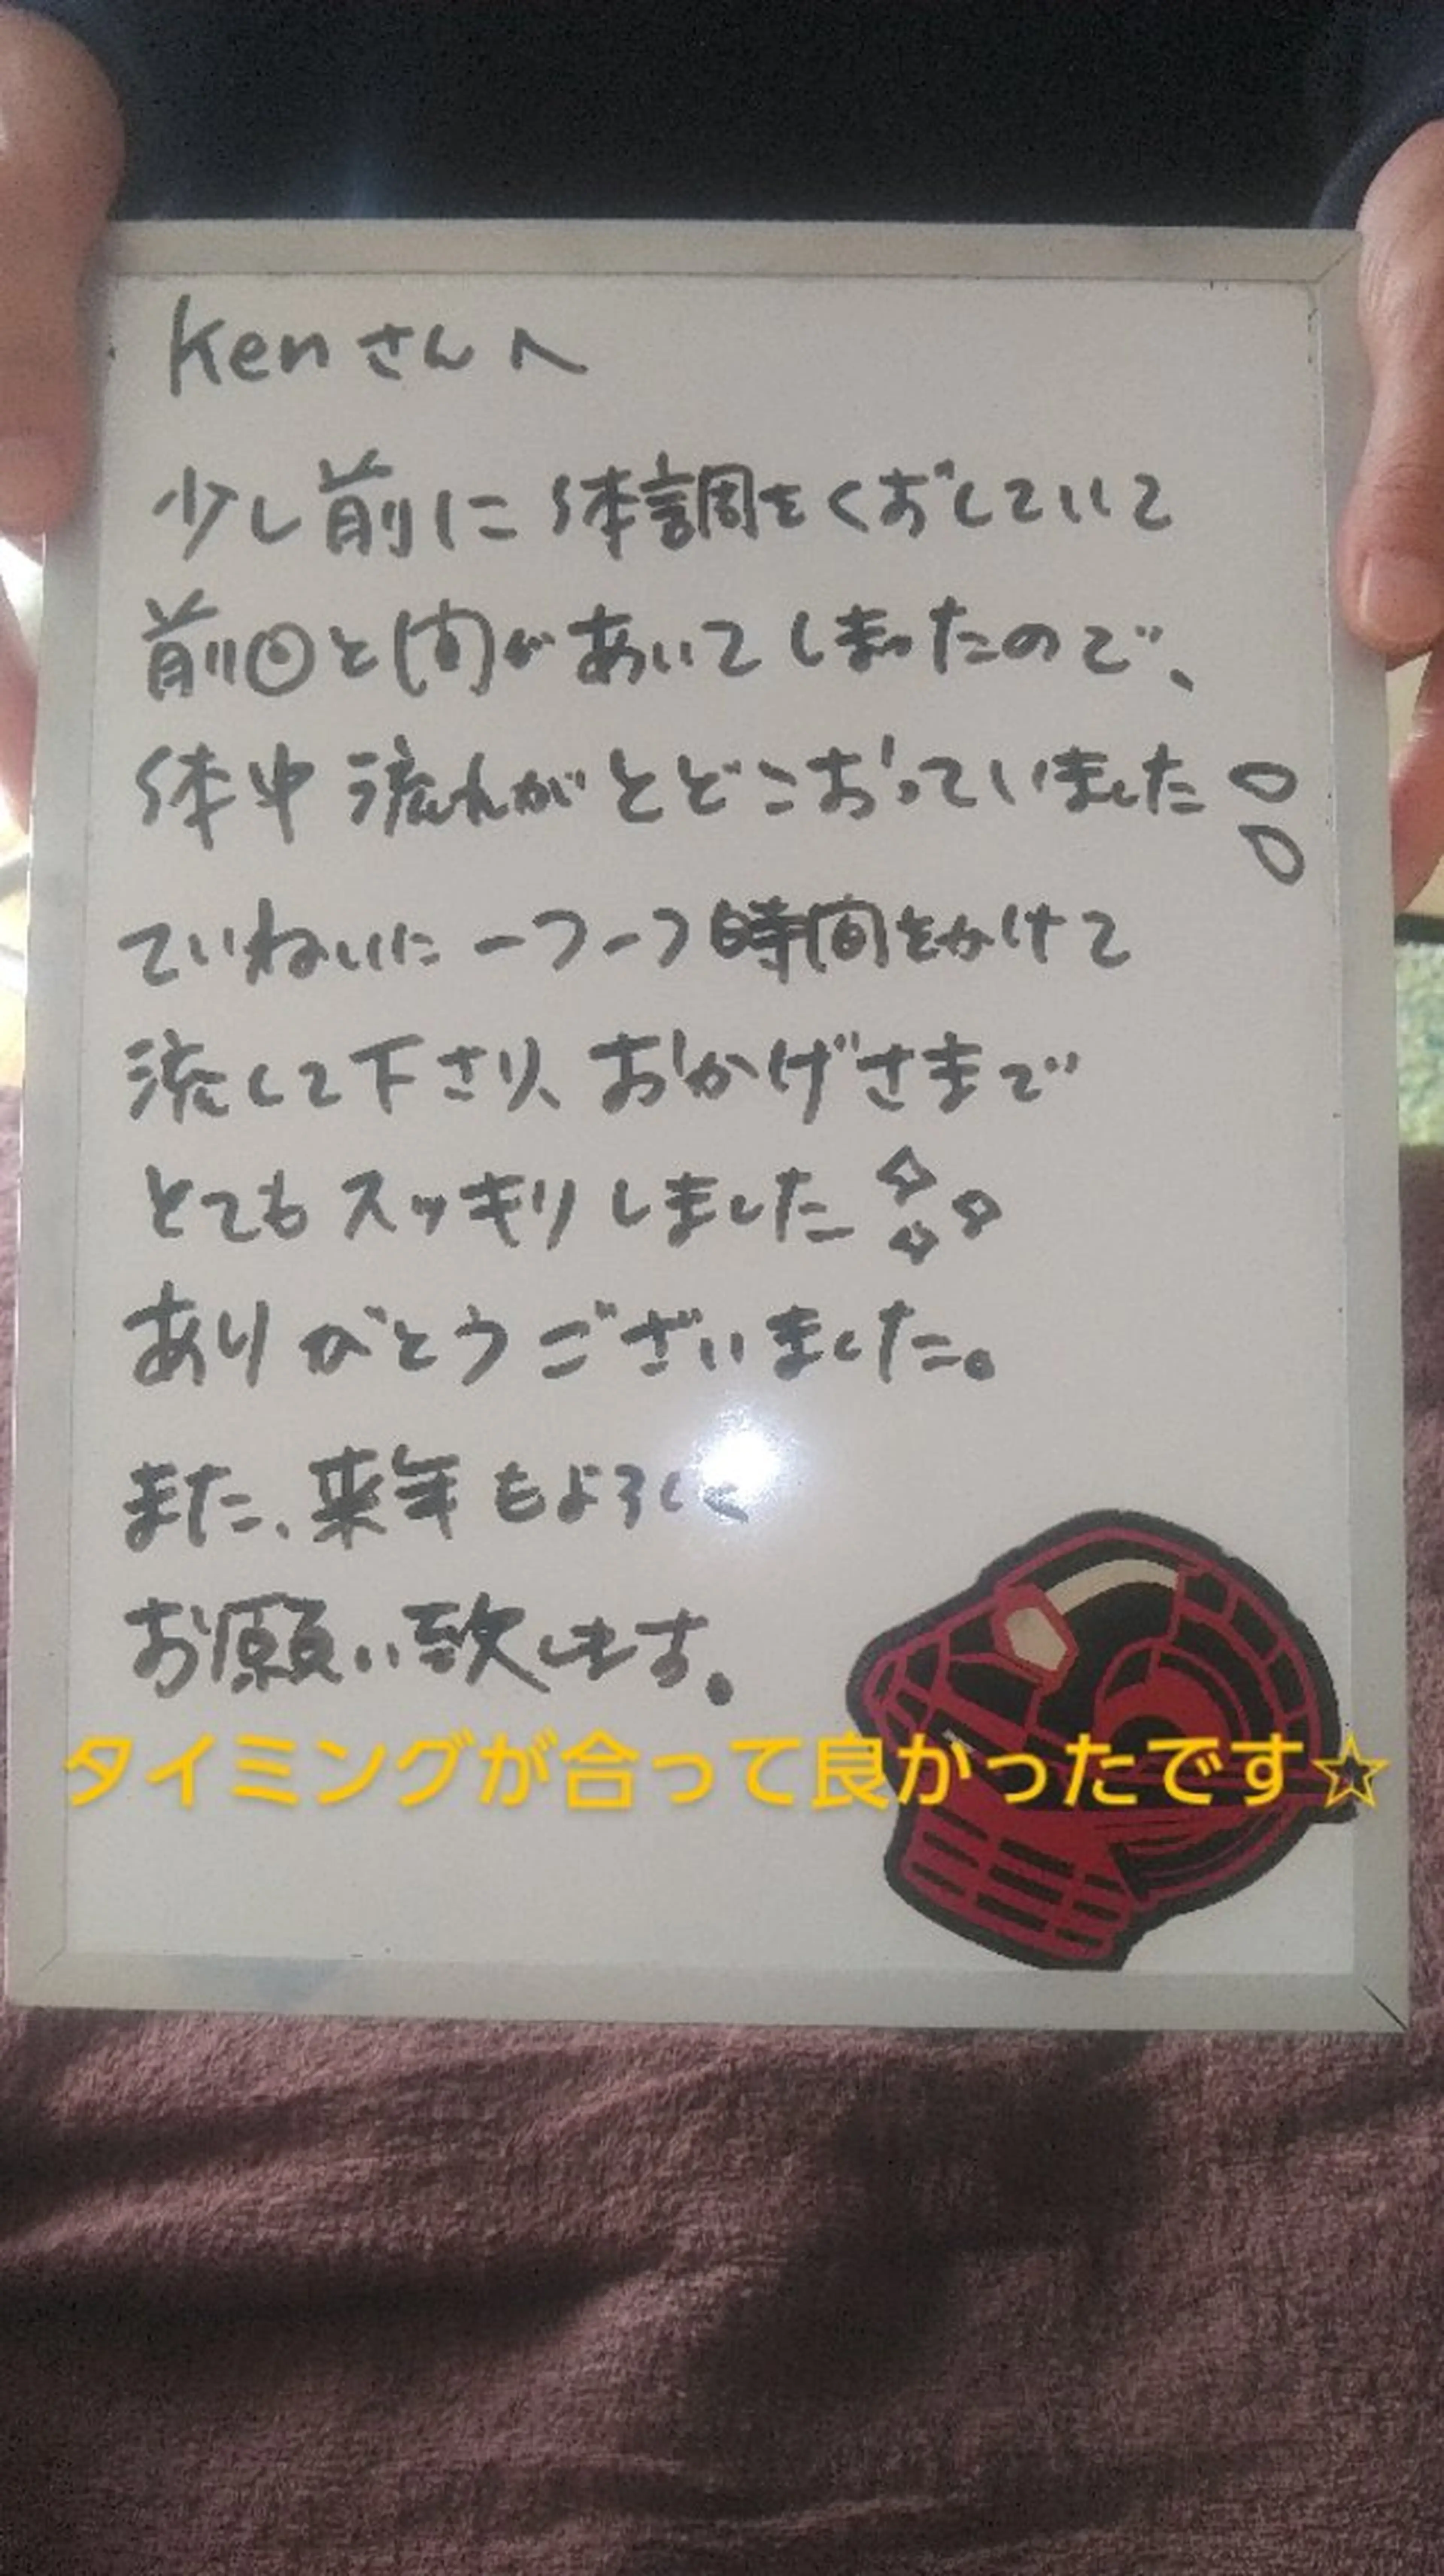 Kenさんへ
少し前に体調をくずしていて
前回と間があいてしまったので、
体中流れがとどこおっていました
ていねいに一つ一つ時間をかけて
流して下さり、おかげさまで
とてもスッキリしました
ありがとうございました。
また、来年もよろしく
お願い致します。
タイミングが合って良かったです☆